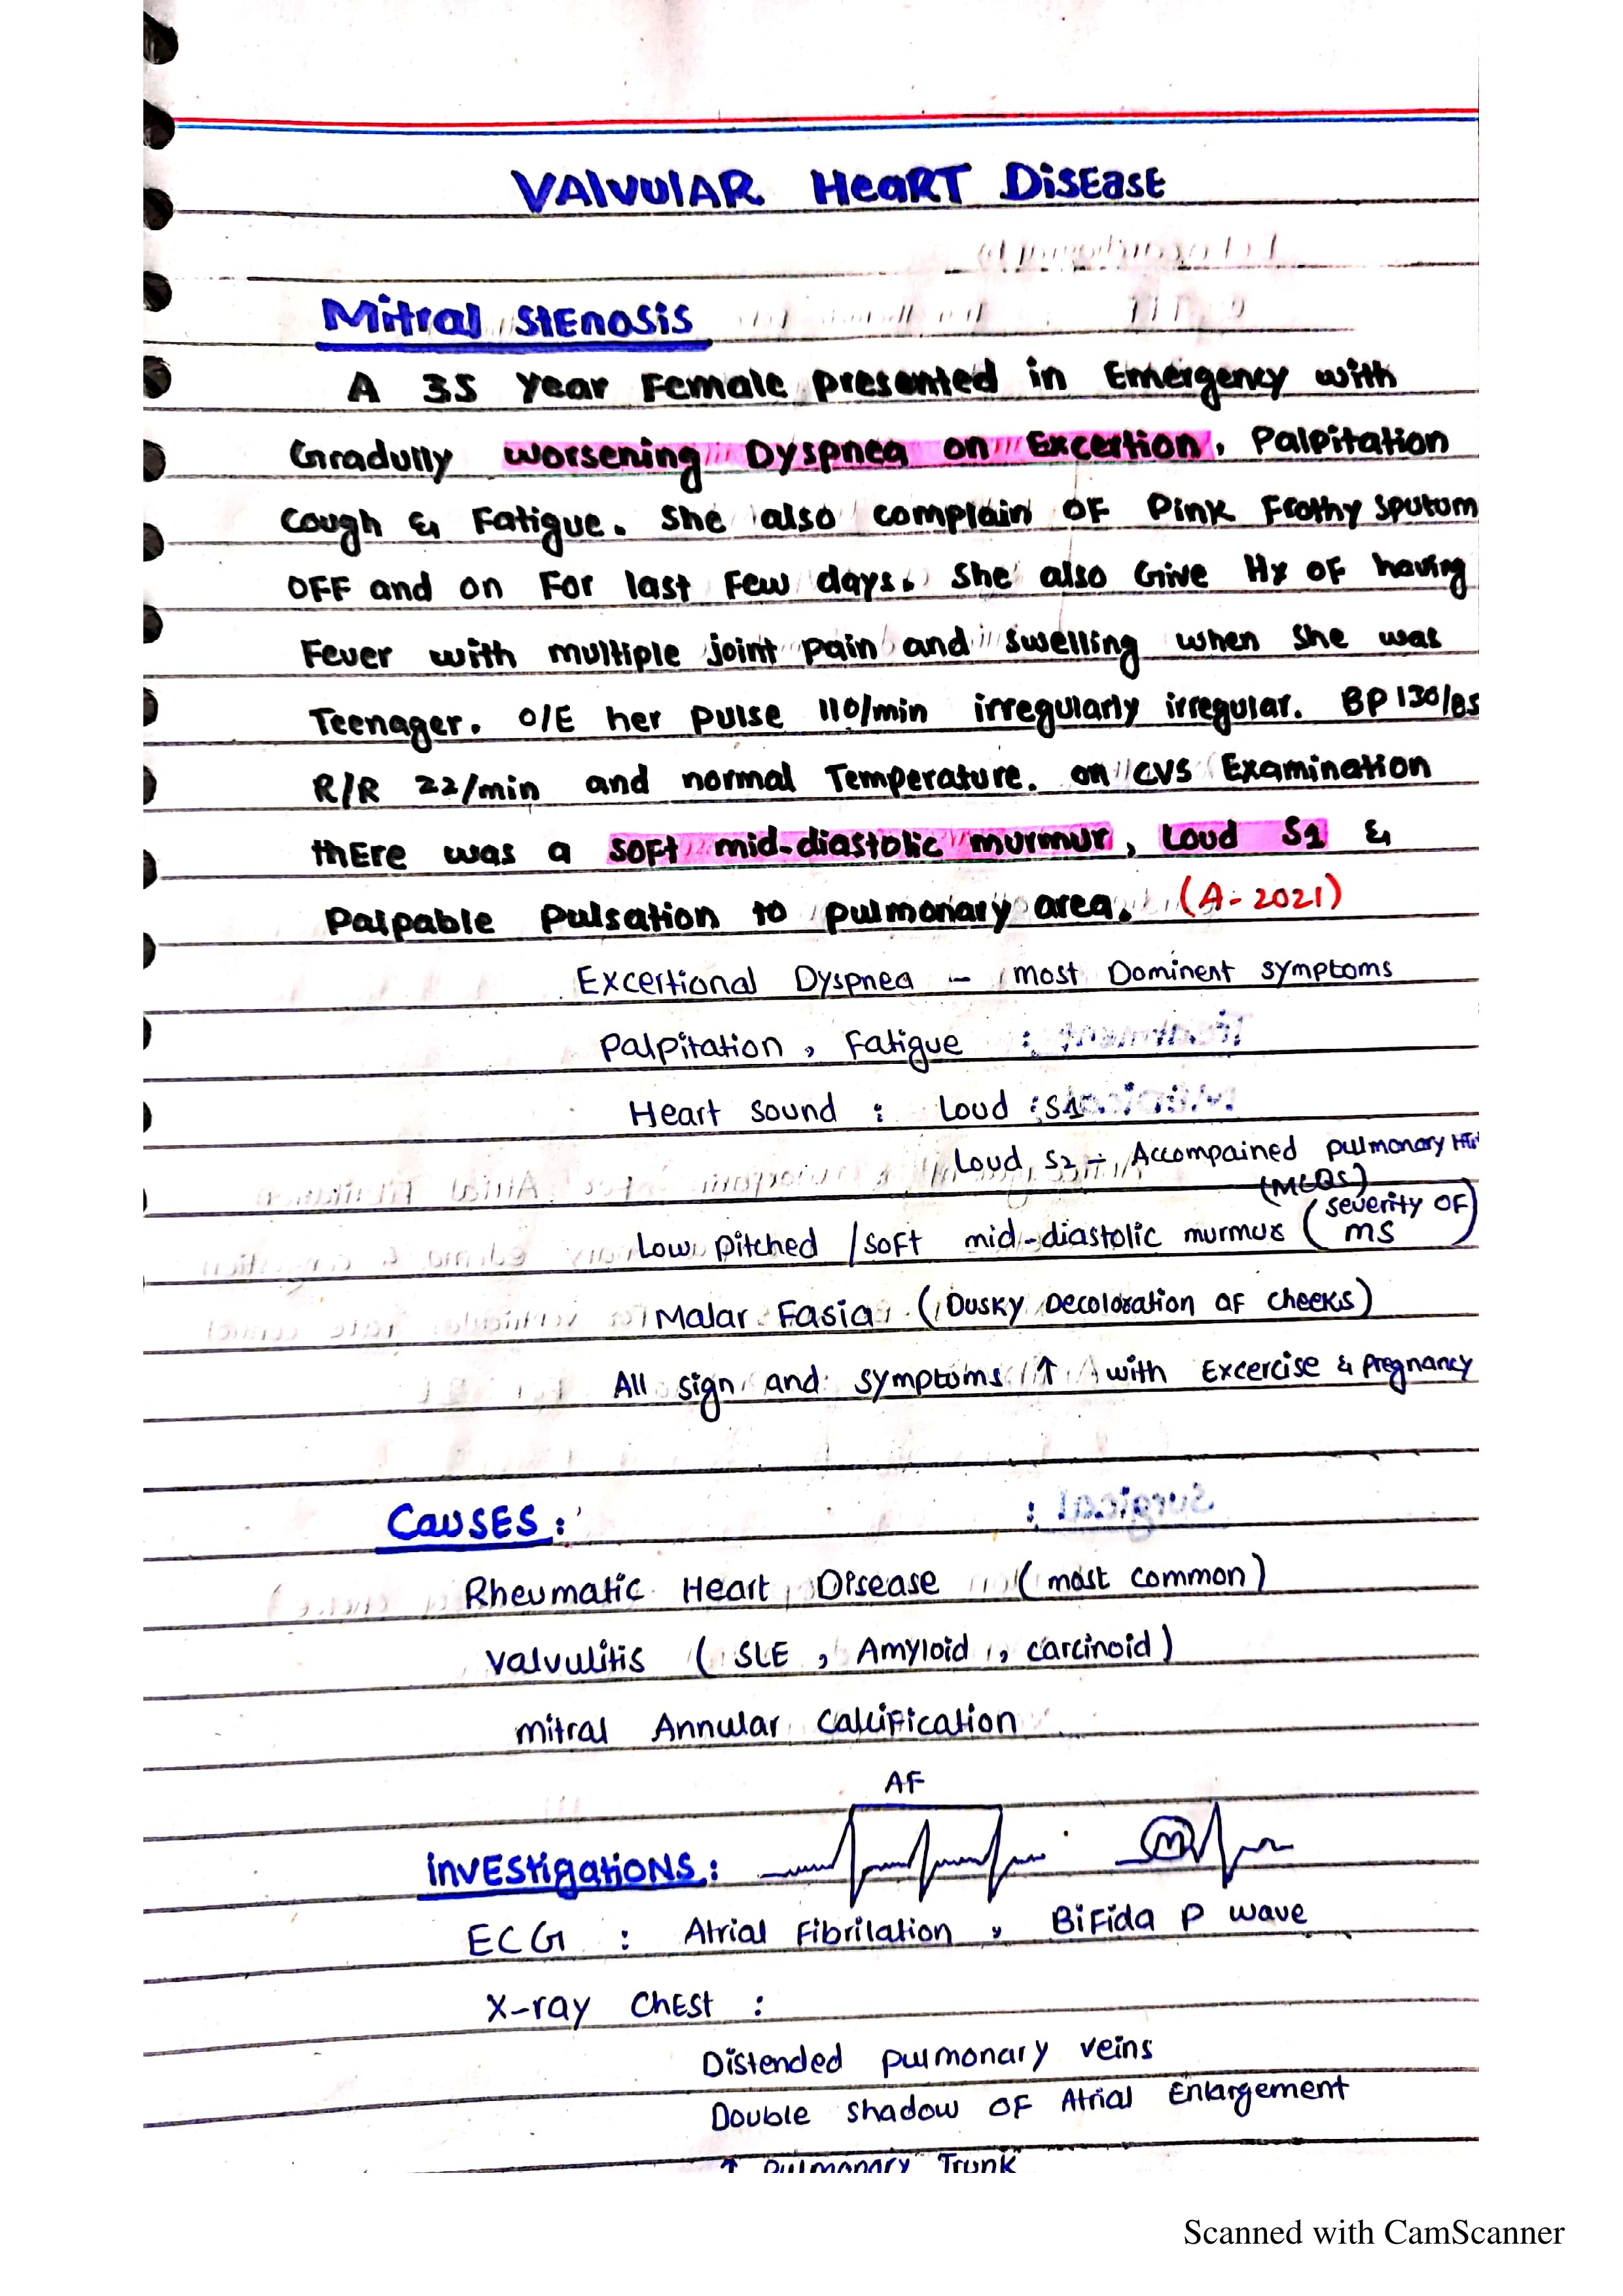 VAlVUlAR HeaRT DiSEasE
Mitral StEnosis
A 35 Year Female presented in Emergency with
Gradully worsening Dyspnea on Excertion, Palpitation
Cough & Fatigue. She also complain OF Pink Frothy sputum
OFF and on For last Few days. She also Give Hx OF having
Fever with multiple joint pain and swelling when She was
Teenager. O/E her pulse 110/min irregularly irregular. BP 130/85
R/R 22/min and normal Temperature. on CVS Examination
thEre was a SOFT mid-diastolic murmur, Loud S1 &
Palpable Pulsation to pulmonary area. (A-2021)
Excertional Dyspnea - most Dominent symptoms
Palpitation, Fatigue
Heart Sound : Loud S1
Loud S2 - Accompained pulmonary HTN
(MCQS)
Low Pitched / soft mid-diastolic murmur (severity OF MS)
Malar Fasia (Dusky Decoloration of cheeks)
All sign and symptoms ↑ with Excercise & pregnancy
CaUSES :
Rheumatic Heart Disease (most common)
Valvulitis (SLE, Amyloid, carcinoid)
mitral Annular Calcification
AF
invEstigatioNS :
ECG : Atrial Fibrilation, BiFida P wave
X-ray ChEst :
Distended pulmonary veins
Double shadow OF Atrial Enlargement
↑ Pulmonary Trunk
Scanned with CamScanner